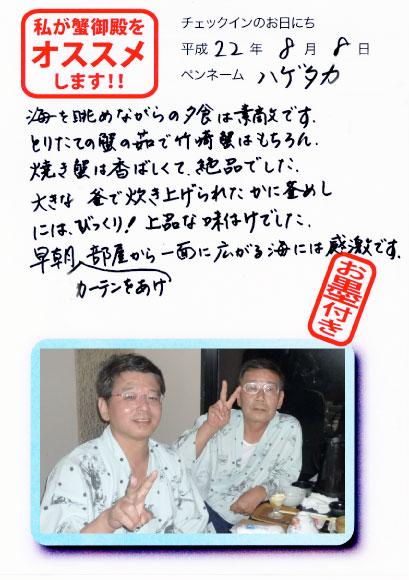 私が蟹御殿を
オススメ
します!!
チェックインのお日にち
平成 22 年 8 月 8 日
ペンネーム ハゲタカ
海を眺めながらの夕食は素敵です.
とりたての蟹の茹で竹崎蟹はもちろん.
焼き蟹は香ばしくて、絶品でした.
大きな 釜で炊き上げられた かに釜めし
には、びっくり! 上品な味付けでした.
早朝 部屋から 一面に広がる海には感激です.
カーテンをあけ
お墨付き